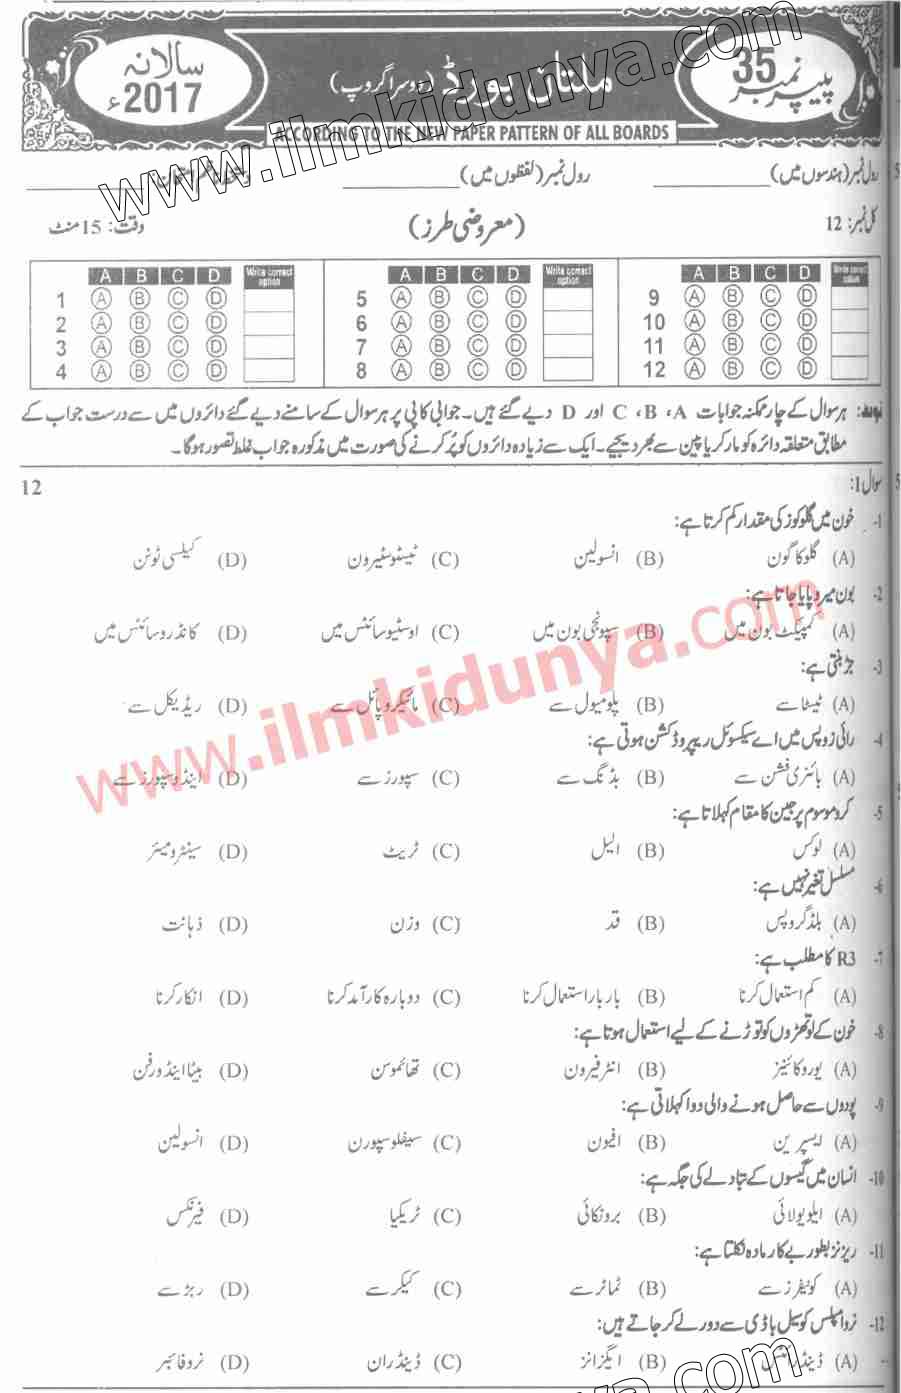 پیپر نمبر 35
ملتان بورڈ (دوسرا گروپ)
سالانہ 2017ء
ACCORDING TO THE NEW PAPER PATTERN OF ALL BOARDS
www.ilmkidunya.com
رول نمبر (ہندسوں میں) ____________ رول نمبر (لفظوں میں) ____________
کل نمبر: 12 (معروضی طرز) وقت: 15 منٹ
A B C D Write correct option A B C D Write correct option A B C D Write correct option
1 A B C D 5 A B C D 9 A B C D
2 A B C D 6 A B C D 10 A B C D
3 A B C D 7 A B C D 11 A B C D
4 A B C D 8 A B C D 12 A B C D
نوٹ: ہر سوال کے چار ممکنہ جوابات A ،B ،C اور D دیے گئے ہیں۔ جوابی کاپی پر ہر سوال کے سامنے دیے گئے دائروں میں سے درست جواب کے
مطابق متعلقہ دائرہ کو مارکر یا پین سے بھر دیجیے۔ ایک سے زیادہ دائروں کو پُر کرنے کی صورت میں مذکورہ جواب غلط تصور ہوگا۔
سوال 1: 12
1- خون میں گلوکوز کی مقدار کم کرتا ہے:
(A) گلوکاگون (B) انسولین (C) ٹیسٹوسٹیرون (D) کیلسی ٹونن
2- بون میرو پایا جاتا ہے:
(A) کمپیکٹ بون میں (B) سپونجی بون میں (C) اوسٹیوسائٹس میں (D) کانڈروسائٹس میں
3- جڑ بنتی ہے:
(A) ٹیسٹا سے (B) پلومیول سے (C) مائیکروپائل سے (D) ریڈیکل سے
4- رائی زوپس میں اے سیکسوئل ریپروڈکشن ہوتی ہے:
(A) بائنری فشن سے (B) بڈنگ سے (C) سپورز سے (D) اینڈوسپورز سے
5- کروموسوم پر جین کا مقام کہلاتا ہے:
(A) لوکس (B) ایلیل (C) ٹریٹ (D) سینٹرومیئر
6- مسلسل تغیر نہیں ہے:
(A) بلڈ گروپس (B) قد (C) وزن (D) ذہانت
7- R3 کا مطلب ہے:
(A) کم استعمال کرنا (B) بار بار استعمال کرنا (C) دوبارہ کارآمد کرنا (D) انکار کرنا
8- خون کے لوتھڑوں کو توڑنے کے لیے استعمال ہوتا ہے:
(A) یوروکائنیز (B) انٹرفیرون (C) تھائموسن (D) بیٹا اینڈورفن
9- پودوں سے حاصل ہونے والی دوا کہلاتی ہے:
(A) ایسپرین (B) افیون (C) سیفلوسپورن (D) انسولین
10- انسان میں گیسوں کے تبادلے کی جگہ ہے:
(A) ایلویولائی (B) برونکائی (C) ٹریکیا (D) فیرنکس
11- ریزنز بطور بے کار مادہ نکلتا ہے:
(A) کونیفرز سے (B) ٹماٹر سے (C) کیکر سے (D) ربڑ سے
12- نرو امپلس کو سیل باڈی سے دور لے کر جاتے ہیں:
(A) ڈینڈرائٹس (B) ایگزانز (C) ڈینڈران (D) نرو فائبر
www.ilmkidunya.com